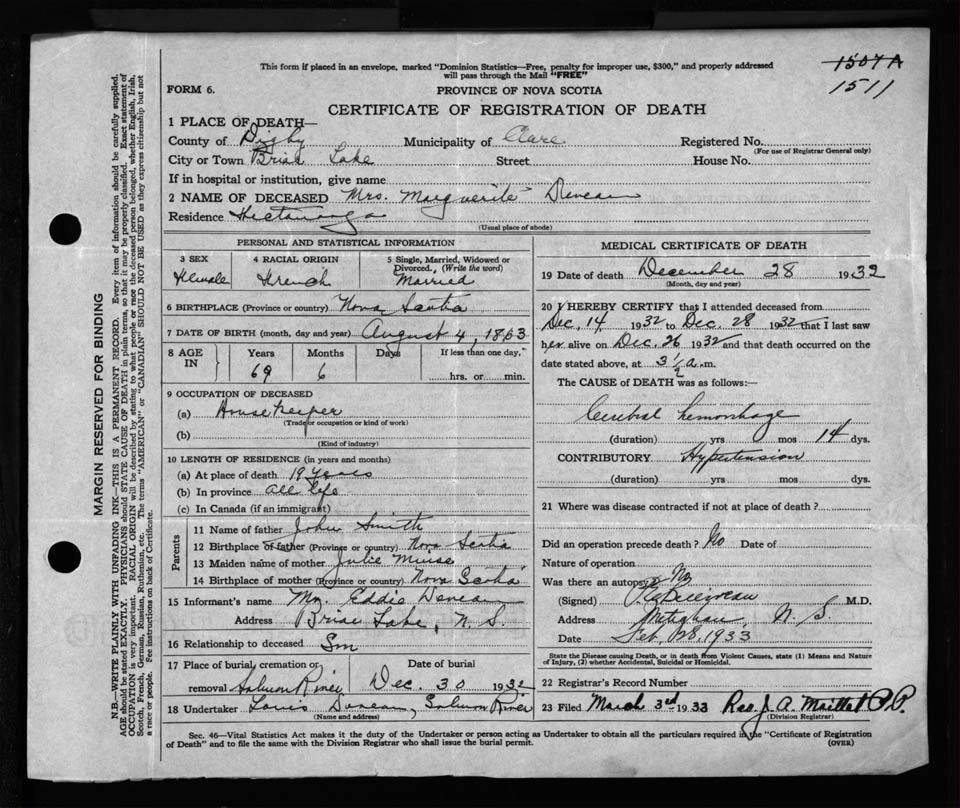 This form if placed in an envelope, marked "Dominion Statistics—Free, penalty for improper use, $300," and properly addressed
will pass through the Mail "FREE"
1507A
1511
FORM 6.
PROVINCE OF NOVA SCOTIA
CERTIFICATE OF REGISTRATION OF DEATH
1 PLACE OF DEATH—
County of Digby Municipality of Clare Registered No.
(For use of Registrar General only)
City or Town Briar Lake Street House No.
If in hospital or institution, give name
2 NAME OF DECEASED Mrs. Marguerite Deveau
Residence Hectanooga
(Usual place of abode)
PERSONAL AND STATISTICAL INFORMATION
3 SEX 4 RACIAL ORIGIN 5 Single, Married, Widowed or
Divorced. (Write the word)
Female French Married
6 BIRTHPLACE (Province or country) Nova Scotia
7 DATE OF BIRTH (month, day and year) August 4, 1863
8 AGE IN Years Months Days If less than one day,
69 6 hrs. or min.
9 OCCUPATION OF DECEASED
(a) Housekeeper
(Trade or occupation or kind of work)
(b)
(Kind of industry)
10 LENGTH OF RESIDENCE (in years and months)
(a) At place of death 19 years
(b) In province all life
(c) In Canada (if an immigrant)
Parents
11 Name of father John Smith
12 Birthplace of father (Province or country) Nova Scotia
13 Maiden name of mother Julie Muise
14 Birthplace of mother (Province or country) Nova Scotia
15 Informant's name Mr. Eddie Deveau
Address Briar Lake, N. S.
16 Relationship to deceased Son
17 Place of burial, cremation or Date of burial
removal Salmon River Dec. 30 1932
18 Undertaker Louis Deveau, Salmon River
(Name and address)
MEDICAL CERTIFICATE OF DEATH
19 Date of death December 28 1932
(Month, day and year)
20 I HEREBY CERTIFY that I attended deceased from
Dec. 14 1932 to Dec. 28 1932 that I last saw
her alive on Dec. 26 1932 and that death occurred on the
date stated above, at 3½ a.m.
The CAUSE of DEATH was as follows:
Cerebral hemorrhage
(duration) yrs mos 14 dys.
CONTRIBUTORY Hypertension
(duration) yrs mos dys.
21 Where was disease contracted if not at place of death?
Did an operation precede death? No Date of
Nature of operation
Was there an autopsy? No
(Signed) M.D.
Address Meteghan, N. S.
Date Feb. 28, 1933
State the Disease causing Death, or in death from Violent Causes, state (1) Means and
Nature of Injury, (2) whether Accidental, Suicidal or Homicidal.
22 Registrar's Record Number
23 Filed March 3rd 1933 Rev. J. A. Maillet P.P.
(Division Registrar)
Sec. 46—Vital Statistics Act makes it the duty of the Undertaker or person acting as Undertaker to obtain all the particulars required in the "Certificate of Registration
of Death" and to file the same with the Division Registrar who shall issue the burial permit.
(OVER)
MARGIN RESERVED FOR BINDING
N.B.—WRITE PLAINLY WITH UNFADING INK—THIS IS A PERMANENT RECORD. Every item of information should be carefully supplied.
AGE should be stated EXACTLY. PHYSICIANS should STATE CAUSE OF DEATH in plain terms, so that it may be properly classified. Exact statement of
OCCUPATION is very important. RACIAL ORIGIN will be described by stating to what people or race the deceased person belonged, whether English, Irish,
Scotch, French, German, Russian, Ruthenian, etc. The terms "AMERICAN" or "CANADIAN" SHOULD NOT BE USED as they express citizenship but not
a race or people. Fee instructions on back of Certificate.